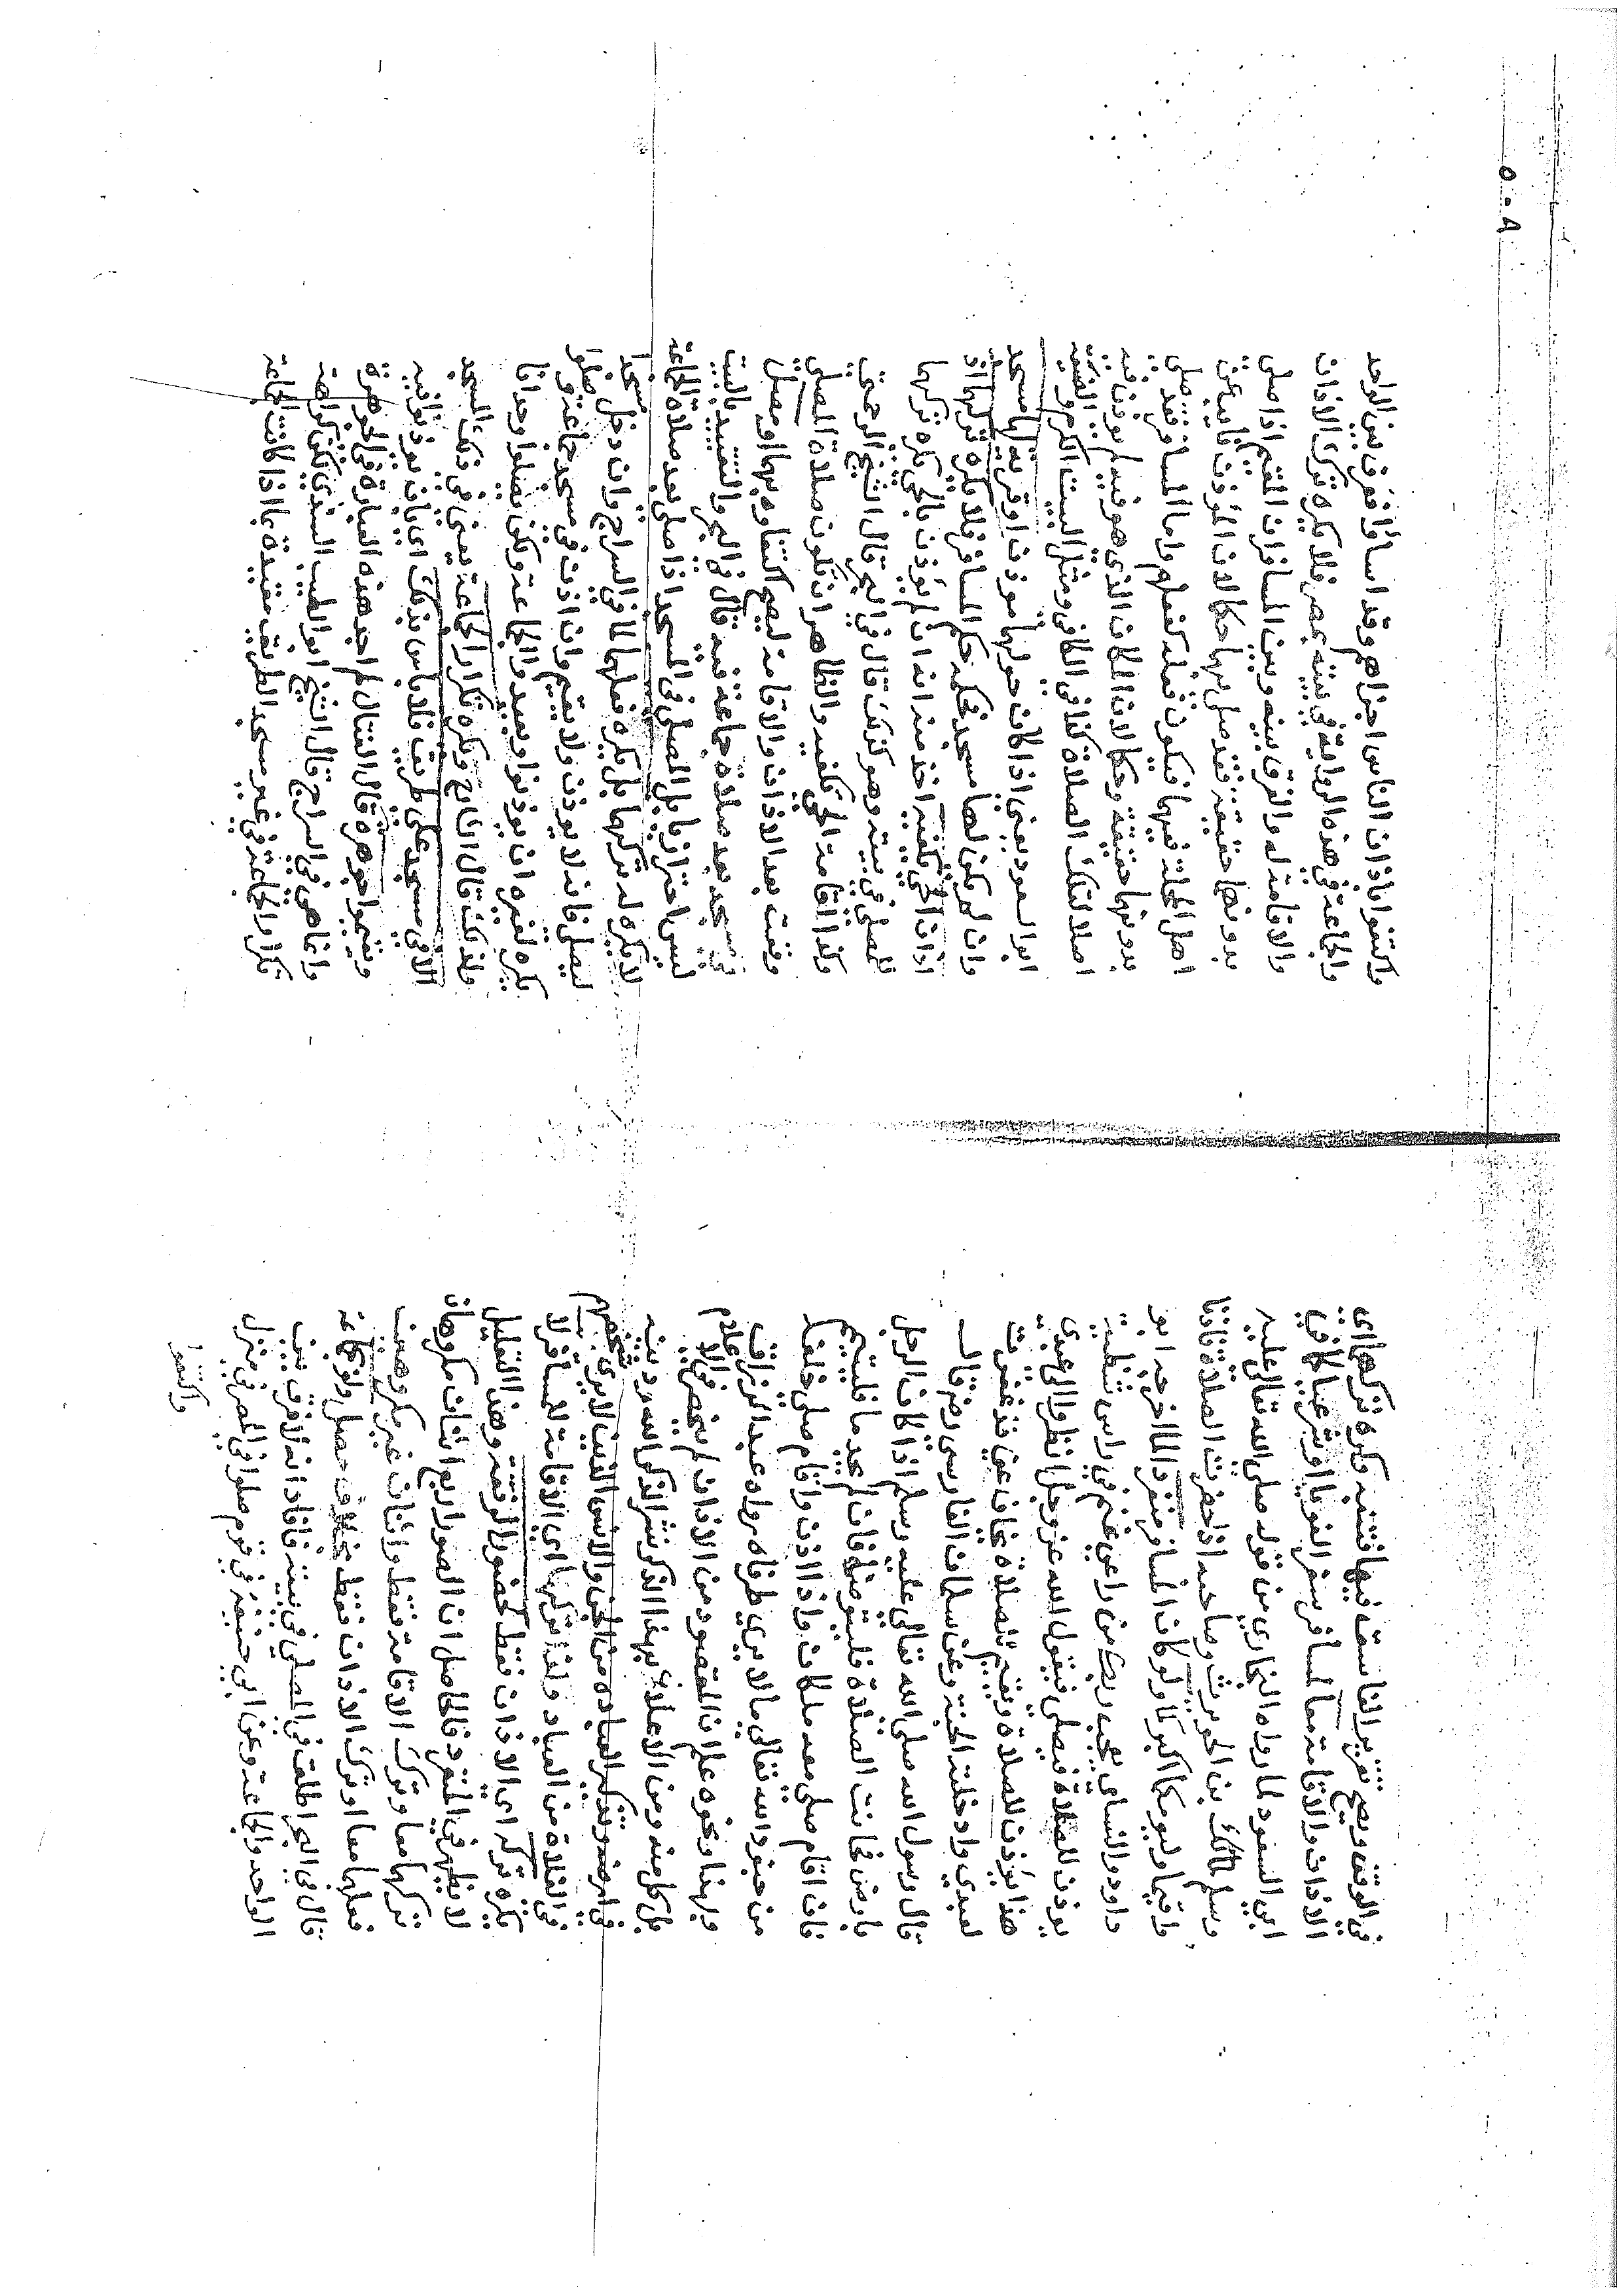 في الوقت ويصح تقرير الفاسق فيها فتنبه وكره تركها اي
الاذان والاقامة معا لمسافر سفرا لغويا او شرعيا كما في
ابي السعود لما رواه البخاري من قوله صلى الله تعالى عليه
وسلم لمالك بن الحويرث وصاحبه اذا حضرت الصلاة فاذنا
واقيما وليؤمكما اكبركما ولو كان المسافر منفردا لما اخرجه ابو
داود والنسائي يعجب ربك من راعي غنم في راس شظية
يوذن للصلاة فيصلي فيقول الله عز وجل انظروا الى عبدي
هذا يؤذن للصلاة ويقيم للصلاة يخاف مني قد غفرت
لعبدي وادخلته الجنة وعن سلمان الفارسي رضي قال
قال رسول الله صلى الله تعالى عليه وسلم اذا كان الرجل
بارض فحانت الصلاة فليتوضا فان لم يجد ما فليتيمم
فان اقام صلى معه ملكان واذا اذن واقام صلى خلفه
من جنود الله تعالى ما لا يرى طرفاه رواه عبد الرزاق
وبهذا ونحوه علم ان المقصود من الاذان لم ينحصر في الاعلام
بل كل منه ومن الاعلان بهذا الذكر نشر الذكر الله ودينه
في ارضه وتذكير العباده من الجن والانس الذين لا يرى شخصهم
في الفلاة من العباد وكذا تركها اي الاقامة للمسافر لا
يكره تركه اي الاذان فقط لحضور الرفقة وهذا التعليل
لا يظهر في المنفرد فالحاصل ان الصور اربع اثنان مكروهان
تركهما معا وترك الاقامة فقط واثنان غير مكروهين
فعلهما معا او ترك الاذان فقط بخلاف مصلي ولو بجماعة
قال في البحر اطلق في المصلي في بيته فافاد انه لا فرق بين
الواحد والجماعة وعن ابي حنيفة في قوم صلوا في المصر في منزل
واكتفوا
واكتفوا باذان الناس اجزاهم وقد اساؤا ففرق بين الواحد
والجماعة في هذه الرواية في بيته بمصر فلا يكره ترك الاذان
والاقامة له والفرق بينه وبين المسافر ان المقيم اذا صلى
بدونهما حقيقة فقد صلى بهما حكما لان المؤذن نايب عن
اهل المحلة فيهما فيكون فعله كفعلهم واما المسافر فقد صلى
بدونهما حقيقة وحكما لان المكان الذي هو فيه لم يوذن فيه
اصلا لتلك الصلاة كذا في الكافي ومثل البيت الكرم والضيعة
ابو السعود يعني اذا كان حولها موذن او قرية لها مسجد
وان لم يكن لها مسجد فحكمه حكم المسافر فلا يكره تركهما اذ
اذان الحي يكفيه اخذ منه انه ان لم يؤذن بالحي يكره تركهما
للمصلي في بيته وهو كذلك قال في البحر قال الشيخ الرحمتي
وكذا اقامة الحي تكفيه والظاهر ان تكون صلاة المصلي
وقعت بعد الاذان والاقامة ليصح اكتفاوه بهما او مصلي
في مسجد بعد صلاة جماعة فيه قال في البحر والتقييد بالبيت
ليس احترازيا بل المصلي في المسجد اذا صلى بعد صلاة الجماعة
لا يكره له تركهما بل يكره فعلهما لما في السراج وان دخل مسجدا
ليصلي فانه لا يوذن ولا يقيم وان اذن في مسجد جماعة وصلوا
يكره لغيرهم ان يوذنوا ويعيدوا الجماعة ولكن يصلوا وحدانا
وكذلك قال المص ويكره تكرار الجماعة يعني في ذلك المسجد
الا في مسجد على طريق فلا باس بذلك اي بان يوذنوا فيه
ويقيموا جوهرة قال الفتال لم اجد هذه العبارة في الجوهرة
وانما هي في السراج قال الشيخ ابو الطيب السندي لكن كراهة
تكرار الجماعة في غير مسجد الطريق مقيدة بما اذا كانت الجماعة